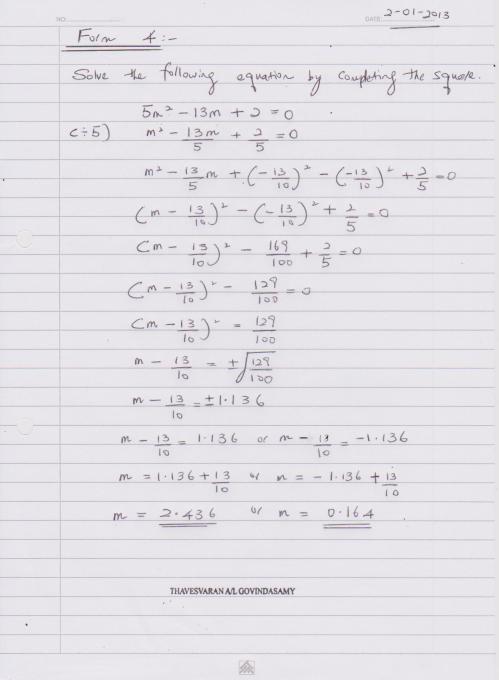 NO. DATE: 2-01-2013
Form 4:-
Solve the following equation by completing the square.
5m² - 13m + 2 = 0
(÷5) m² - 13m/5 + 2/5 = 0
m² - 13/5 m + (-13/10)² - (-13/10)² + 2/5 = 0
(m - 13/10)² - (-13/10)² + 2/5 = 0
(m - 13/10)² - 169/100 + 2/5 = 0
(m - 13/10)² - 129/100 = 0
(m - 13/10)² = 129/100
m - 13/10 = ±√129/100
m - 13/10 = ±1.136
m - 13/10 = 1.136 or m - 13/10 = -1.136
m = 1.136 + 13/10 or m = -1.136 + 13/10
m = 2.436 or m = 0.164
THAVESVARAN A/L GOVINDASAMY